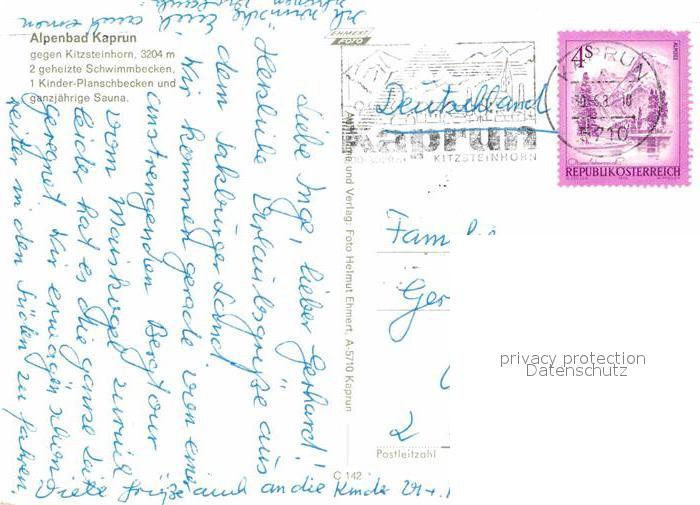 Alpenbad Kaprun
gegen Kitzsteinhorn, 3204 m
2 geheizte Schwimmbecken,
1 Kinder-Planschbecken und
ganzjährige Sauna.
EHMERT
FOTO
Liebe Inge, lieber Gerhard!
Herzliche Urlaubsgrüße aus
dem Salzburger Land.
Wir kommen gerade von einer
anstrengenden Bergtour
vom Maiskogel zurück
Leider hat es die ganze Zeit
geregnet. Wir erwägen schon
weiter in den Süden zu fahren.
Ich wünsche Euch auch einen
schönen
Viele Grüße auch an die Kinder
und Verlag: Foto Helmut Ehmert, A-5710 Kaprun
C 142
Deutschland
Kaprun
KITZSTEINHORN
KAPRUN
5710
4 S
REPUBLIK ÖSTERREICH
Fam
Ger
Postleitzahl
privacy protection
Datenschutz